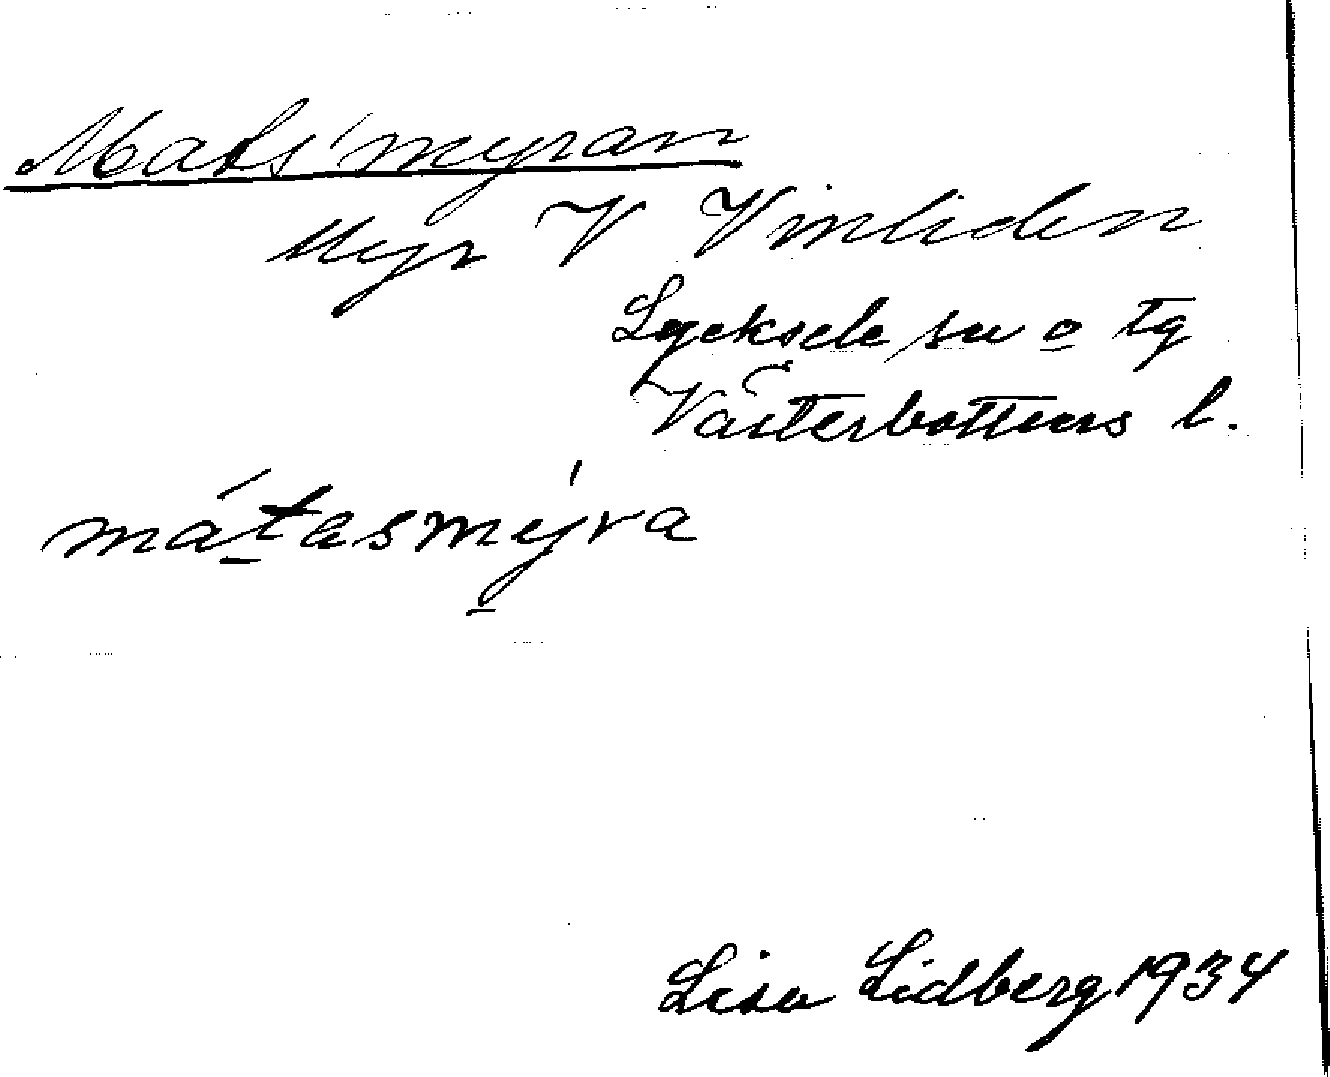 Mats'myran
Myr V Vinliden
Lycksele sn o tg
Västerbottens l.
mátasmýra
Lisa Lidberg 1934